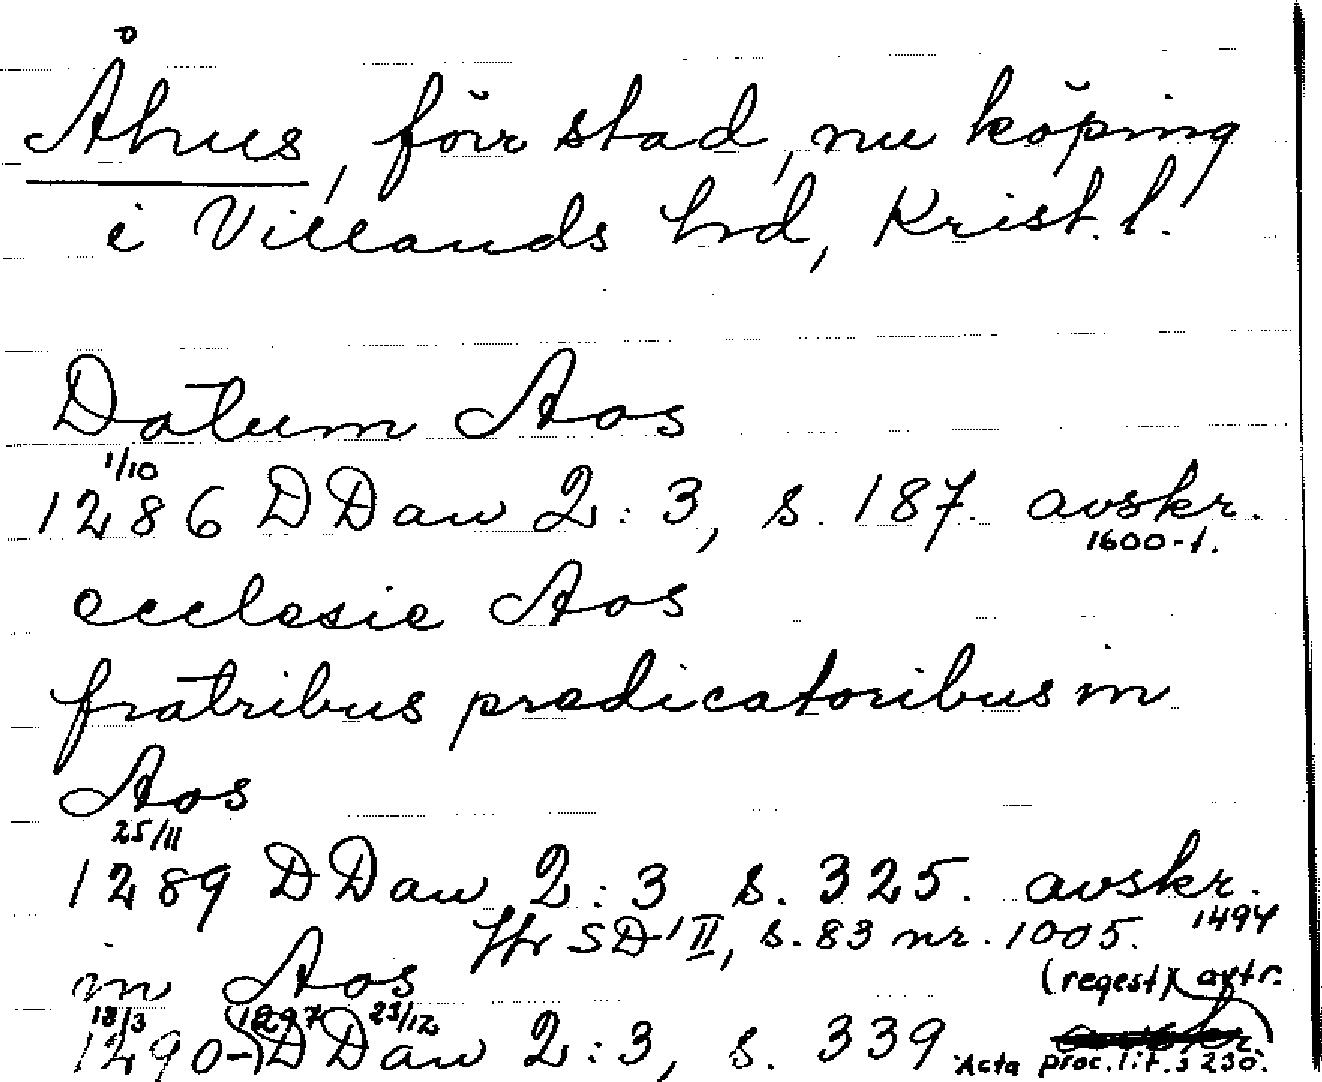 Åhus, förr stad, nu köping
i Villands hrd, Krist. l.
Datum Aos
1/10
1286 DDan 2:3, s. 187. avskr.
1600-t.
ecclesie Aos
fratribus predicatoribus in
Aos
25/11
1289 DDan 2:3 s. 325. avskr.
1494
Jfr SD II, s. 83 nr. 1005.
in Aos
(regest) avtr.
18/3 1297 23/12
1290-) DDan 2:3, s. 339
Acta proc. lit. s 230.